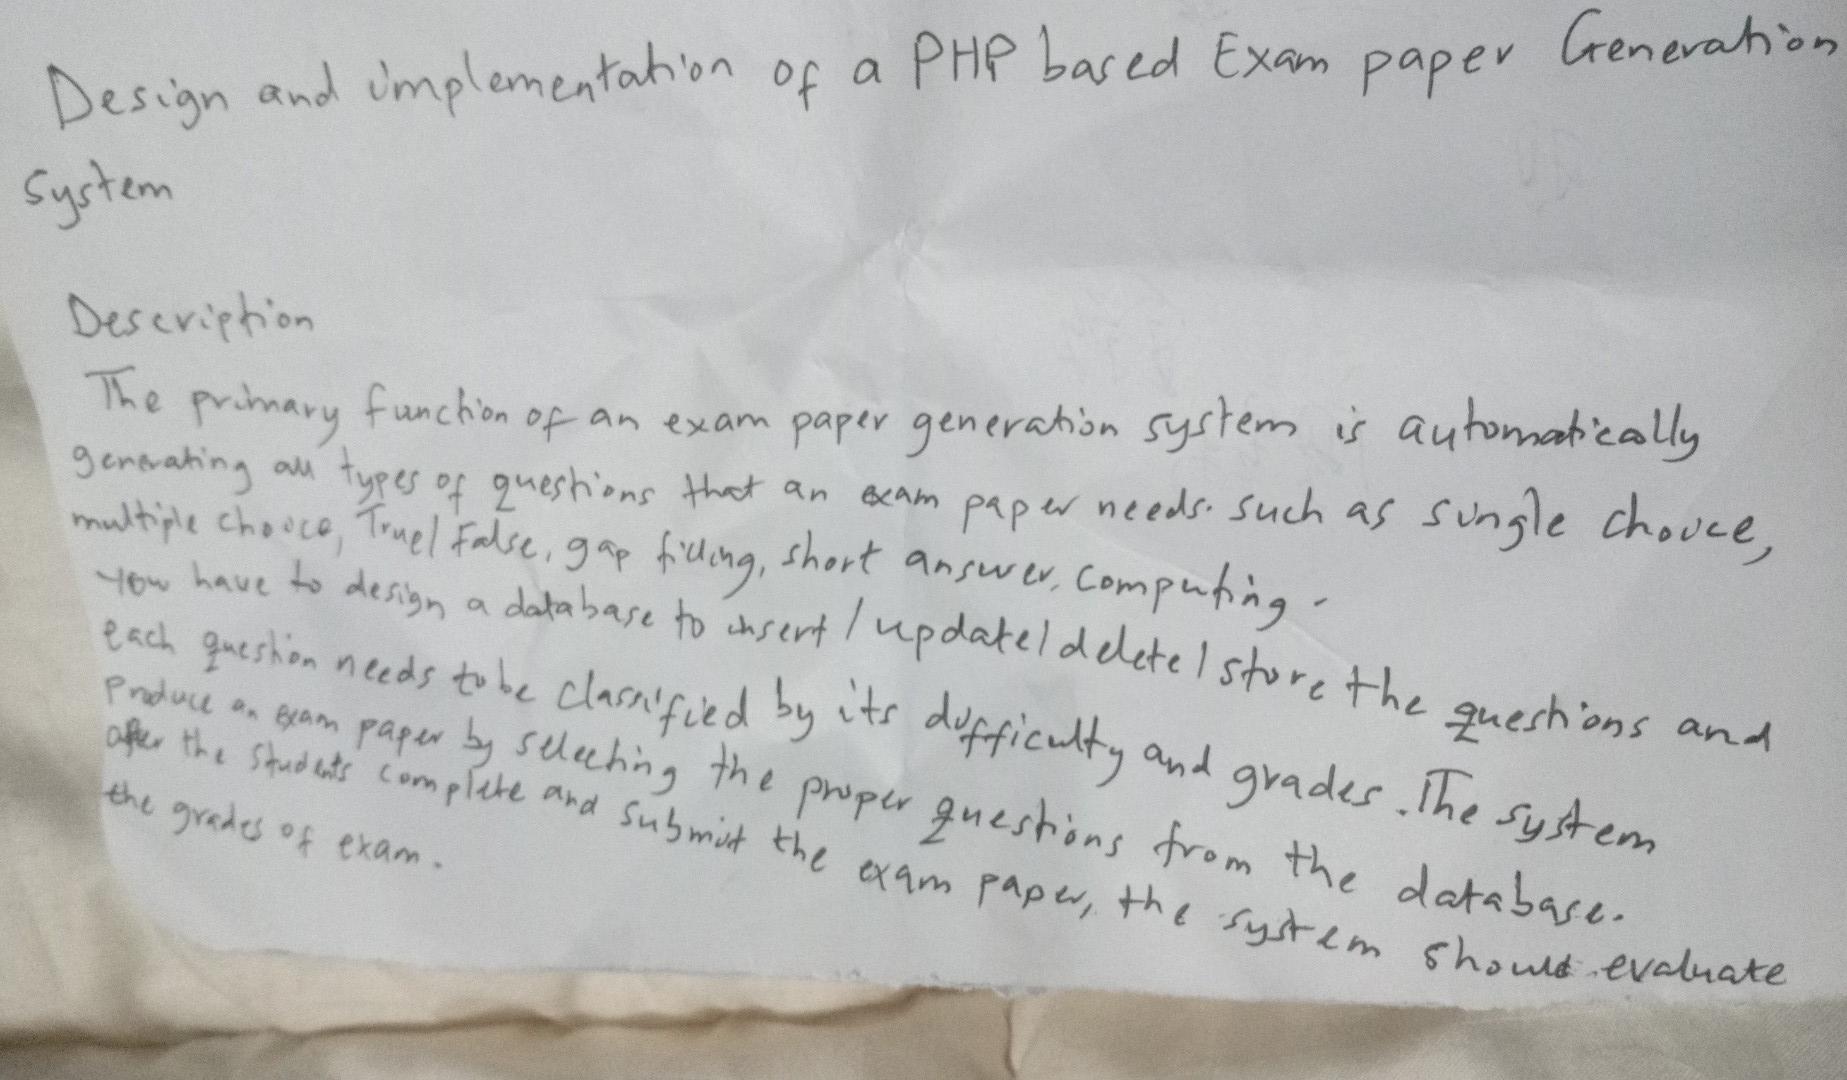 Design and implementation of a PHP based Exam paper Generation
System
Description
The primary function of an exam paper generation system is automatically
generating all types of questions that an exam paper needs. such as single choice,
multiple choice, True/False, gap filling, short answer, computing.
You have to design a database to insert/update/delete/store the questions and
each question needs to be classified by its difficulty and grades. The system
produce an exam paper by selecting the proper questions from the database.
after the students complete and submit the exam paper, the system should evaluate
the grades of exam.